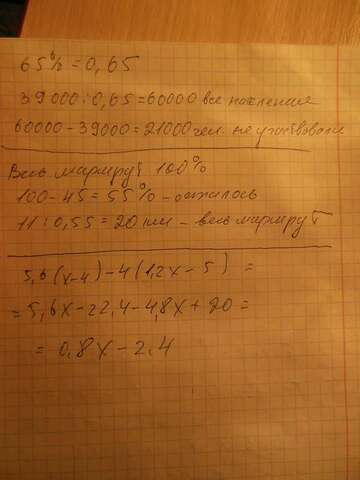 65% = 0,65
39000:0,65=60000 все население
60000-39000=21000 чел. не участвовали
Весь маршрут 100%
100-45=55% - осталось
11:0,55=20 км - весь маршрут
5,6(x-4)-4(1,2x-5) =
=5,6x-22,4-4,8x+20=
= 0,8x-2,4